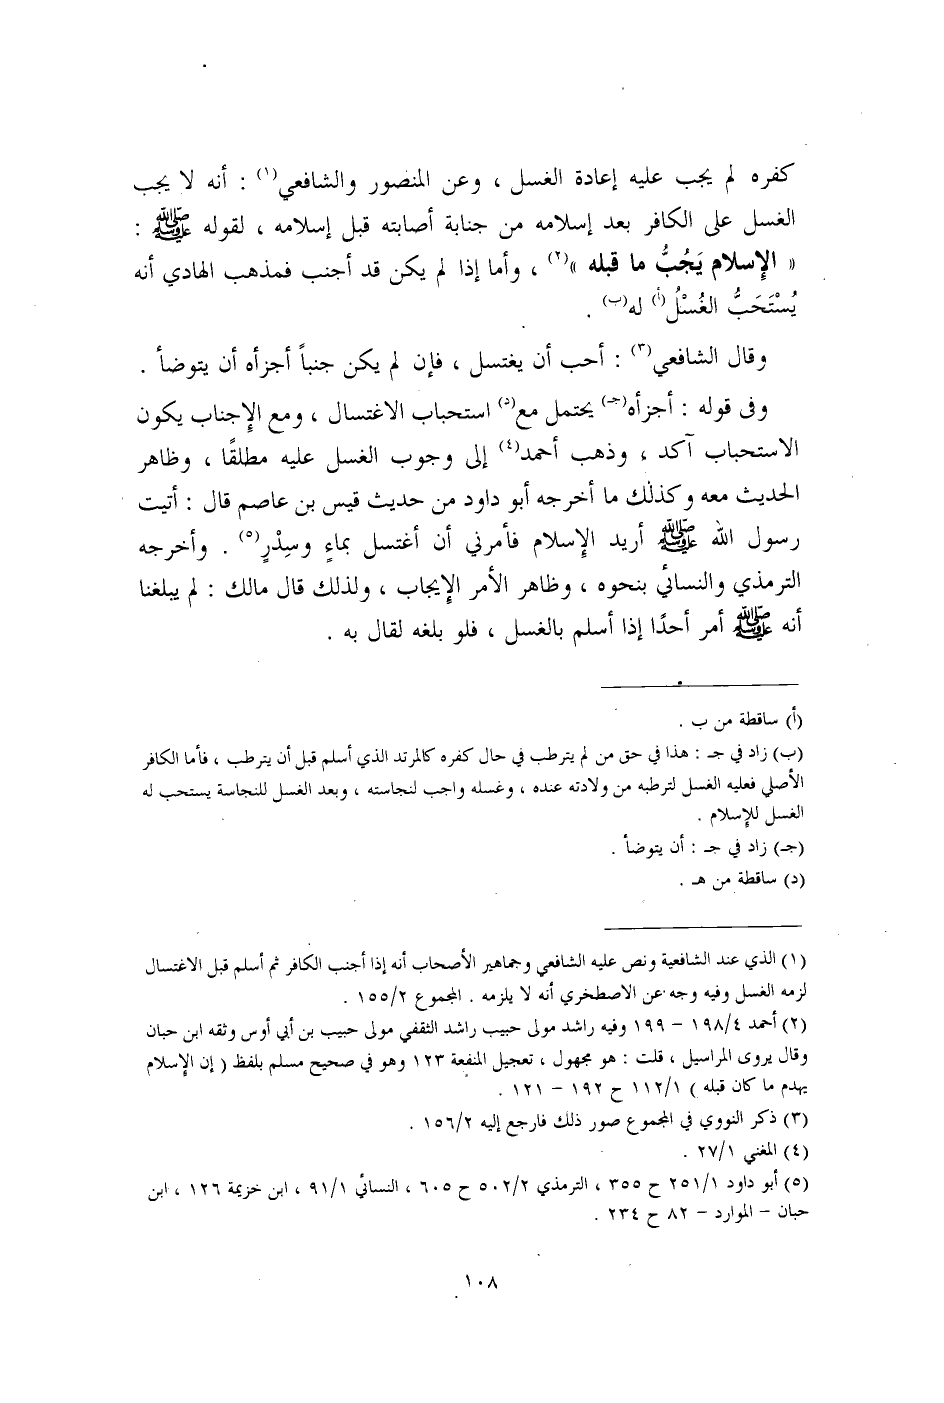 كفره لم يجب عليه إعادة الغسل ، وعن المنصور والشافعي(١) : أنه لا يجب
الغسل على الكافر بعد إسلامه من جنابة أصابته قبل إسلامه ، لقوله ﷺ :
« الإسلام يَجُبُّ ما قبله »(٢) ، وأما إذا لم يكن قد أجنب فمذهب الهادي أنه
يُسْتَحَبُّ الغُسْلُ(أ) له(ب) .
وقال الشافعي(٣) : أحب أن يغتسل ، فإن لم يكن جنباً أجزأه أن يتوضأ .
وفى قوله : أجزأه(جـ) يحتمل مع(د) استحباب الاغتسال ، ومع الإجناب يكون
الاستحباب آكد ، وذهب أحمد(٤) إلى وجوب الغسل عليه مطلقًا ، وظاهر
الحديث معه وكذلك ما أخرجه أبو داود من حديث قيس بن عاصم قال : أتيت
رسول الله ﷺ أريد الإسلام فأمرني أن أغتسل بماءٍ وسِدْرٍ(٥) . وأخرجه
الترمذي والنسائي بنحوه ، وظاهر الأمر الإيجاب ، ولذلك قال مالك : لم يبلغنا
أنه ﷺ أمر أحدًا إذا أسلم بالغسل ، فلو بلغه لقال به .
(أ) ساقطة من ب .
(ب) زاد في جـ : هذا في حق من لم يترطب في حال كفره كالمرتد الذي أسلم قبل أن يترطب ، فأما الكافر
الأصلي فعليه الغسل لترطبه من ولادته عنده ، وغسله واجب لنجاسته ، وبعد الغسل للنجاسة يستحب له
الغسل للإسلام .
(جـ) زاد في جـ : أن يتوضأ .
(د) ساقطة من هـ .
(١) الذي عند الشافعية ونص عليه الشافعي وجماهير الأصحاب أنه إذا أجنب الكافر ثم أسلم قبل الاغتسال
لزمه الغسل وفيه وجه عن الاصطخري أنه لا يلزمه . المجموع ١٥٥/٢ .
(٢) أحمد ١٩٨/٤ – ١٩٩ وفيه راشد مولى حبيب راشد الثقفي مولى حبيب بن أبي أوس وثقه ابن حبان
وقال يروى المراسيل ، قلت : هو مجهول ، تعجيل المنفعة ١٢٣ وهو في صحيح مسلم بلفظ ( إن الإسلام
يهدم ما كان قبله ) ١١٢/١ ح ١٩٢ – ١٢١ .
(٣) ذكر النووي في المجموع صور ذلك فارجع إليه ١٥٦/٢ .
(٤) المغني ٢٧/١ .
(٥) أبو داود ٢٥١/١ ح ٣٥٥ ، الترمذي ٥٠٢/٢ ح ٦٠٥ ، النسائي ٩١/١ ، ابن خزيمة ١٢٦ ، ابن
حبان – الموارد – ٨٢ ح ٢٣٤ .
١٠٨